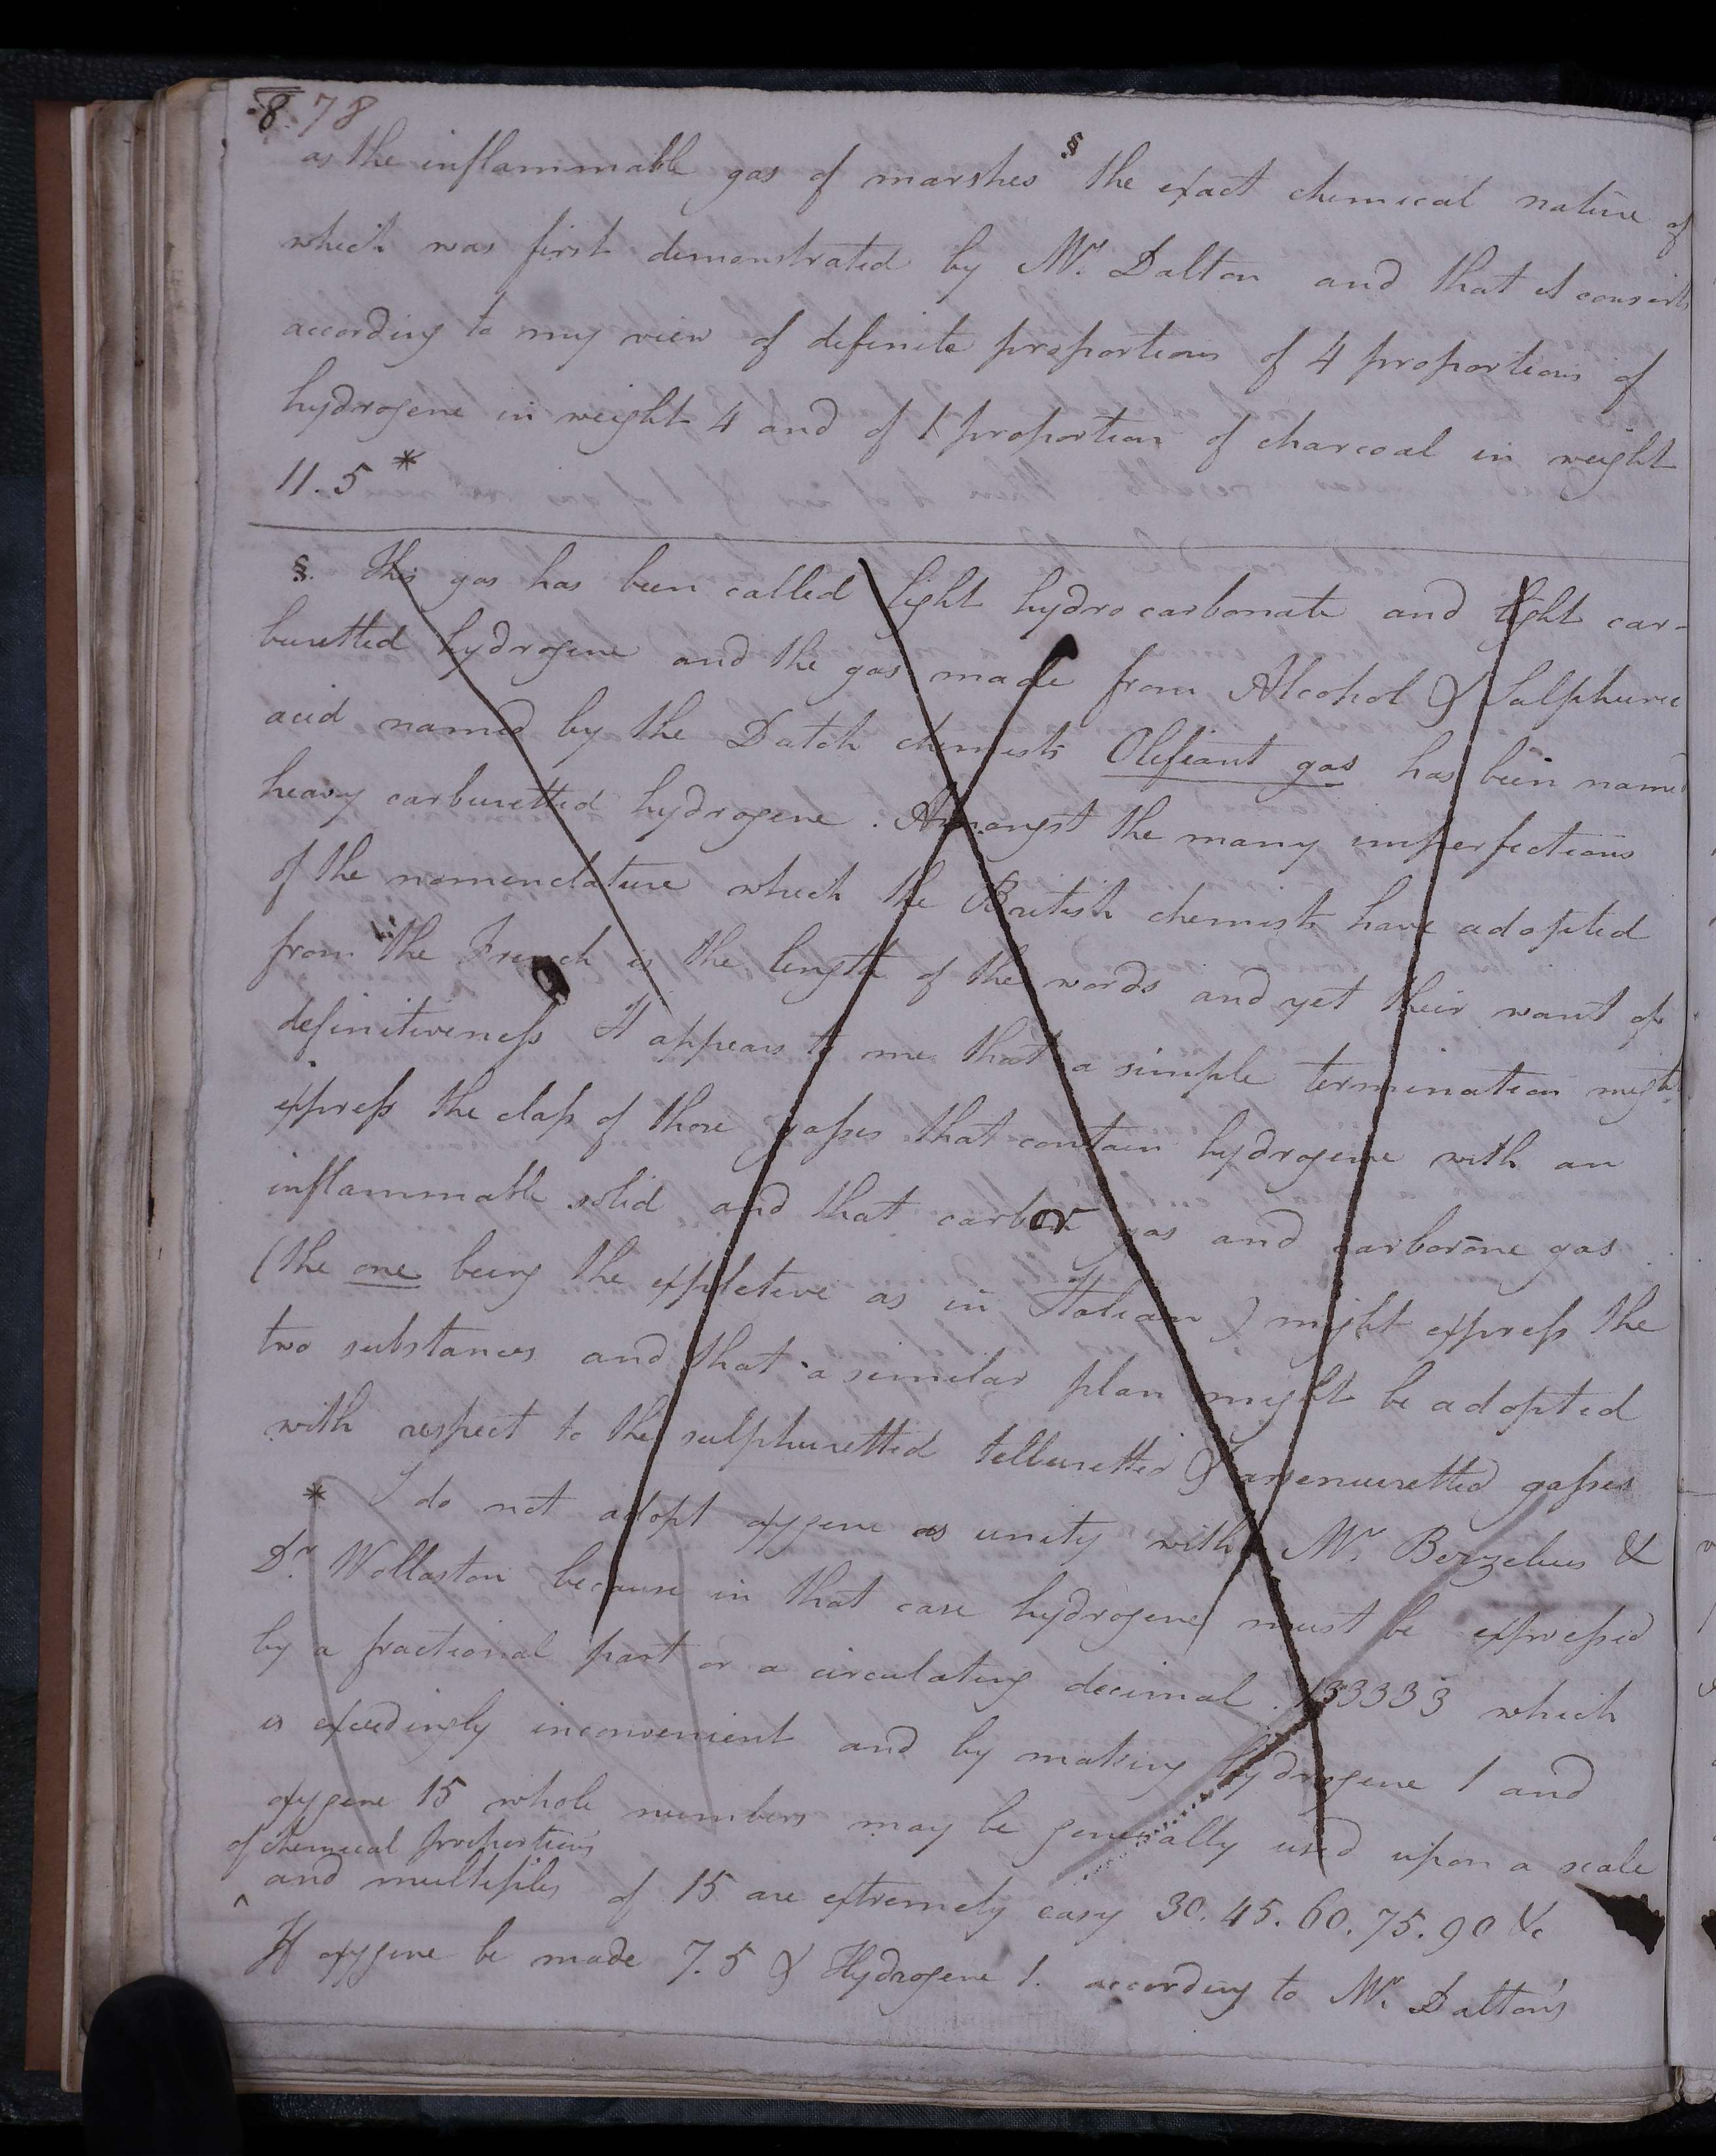 8. 78
as the inflammable gas of marshes § the exact chemical nature of
which was first demonstrated by Mr. Dalton and that it consists
according to my view of definite proportions of 4 proportions of
hydrogene in weight 4 and of 1 proportion of charcoal in weight
11.5 *
§. This gas has been called light hydro carbonate and light car-
buretted hydrogene and the gas made from Alcohol & Sulphuric
acid named by the Dutch chemists Olefiant gas has been named
heavy carburetted hydrogene. Amongst the many imperfections
of the nomenclature which the British chemists have adopted
from the French is the length of the words and yet their want of
definitiveness It appears to me that a simple termination might
express the class of those gasses that contain hydrogene with an
inflammable solid and that carbor gas and carborone gas
(the one being the expletive as in Italian) might express the
two substances and that a similar plan might be adopted
with respect to the sulphuretted telluretted & arsenuretted gasses
* I do not adopt oxygene as unity with Mr. Berzelius &
Dr. Wollaston because in that case hydrogene must be expressed
by a fractional part or a circulating decimal .133333 which
is exceedingly inconvenient and by making hydrogene 1 and
oxygene 15 whole numbers may be generally used upon a scale
of chemical proportions
^ and multiples of 15 are extremely easy 30. 45. 60. 75. 90 &c
If oxygene be made 7.5 & Hydrogene 1. according to Mr. Dalton's